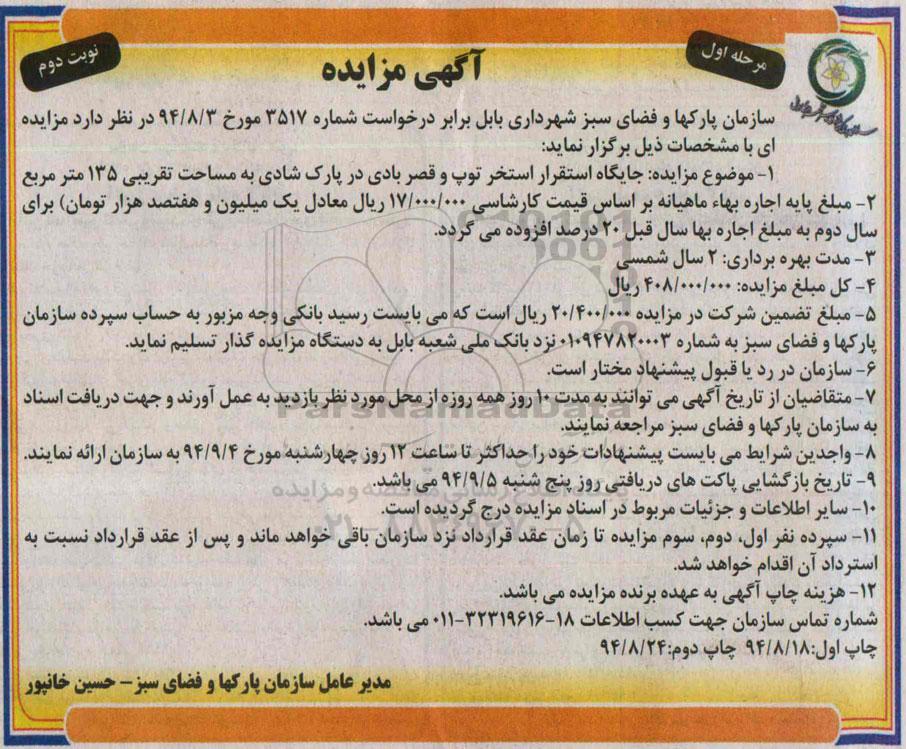 مرحله اول
نوبت دوم
آگهی مزایده
سازمان پارکها و فضای سبز شهرداری بابل برابر درخواست شماره ۳۵۱۷ مورخ ۹۴/۸/۳ در نظر دارد مزایده
ای با مشخصات ذیل برگزار نماید:
۱- موضوع مزایده: جایگاه استقرار استخر توپ و قصر بادی در پارک شادی به مساحت تقریبی ۱۳۵ متر مربع
۲- مبلغ پایه اجاره بهاء ماهیانه بر اساس قیمت کارشناسی ۱۷/۰۰۰/۰۰۰ ریال معادل یک میلیون و هفتصد هزار تومان) برای
سال دوم به مبلغ اجاره بها سال قبل ۲۰ درصد افزوده می گردد.
۳- مدت بهره برداری: ۲ سال شمسی
۴- کل مبلغ مزایده: ۴۰۸/۰۰۰/۰۰۰ ریال
۵- مبلغ تضمین شرکت در مزایده ۲۰/۴۰۰/۰۰۰ ریال است که می بایست رسید بانکی وجه مزبور به حساب سپرده سازمان
پارکها و فضای سبز به شماره ۰۱۰۹۴۷۸۲۰۰۰۳ نزد بانک ملی شعبه بابل به دستگاه مزایده گذار تسلیم نماید.
۶- سازمان در رد یا قبول پیشنهاد مختار است.
۷- متقاضیان از تاریخ آگهی می توانند به مدت ۱۰ روز همه روزه از محل مورد نظر بازدید به عمل آورند و جهت دریافت اسناد
به سازمان پارکها و فضای سبز مراجعه نمایند.
۸- واجدین شرایط می بایست پیشنهادات خود را حداکثر تا ساعت ۱۲ روز چهارشنبه مورخ ۹۴/۹/۴ به سازمان ارائه نمایند.
۹- تاریخ بازگشایی پاکت های دریافتی روز پنج شنبه ۹۴/۹/۵ می باشد.
۱۰- سایر اطلاعات و جزئیات مربوط در اسناد مزایده درج گردیده است.
۱۱- سپرده نفر اول، دوم، سوم مزایده تا زمان عقد قرارداد نزد سازمان باقی خواهد ماند و پس از عقد قرارداد نسبت به
استرداد آن اقدام خواهد شد.
۱۲- هزینه چاپ آگهی به عهده برنده مزایده می باشد.
شماره تماس سازمان جهت کسب اطلاعات ۱۸-۳۲۳۱۹۶۱۶-۰۱۱ می باشد.
چاپ اول:۹۴/۸/۱۸ چاپ دوم:۹۴/۸/۲۴
مدیر عامل سازمان پارکها و فضای سبز - حسین خانپور
ParsNamadData